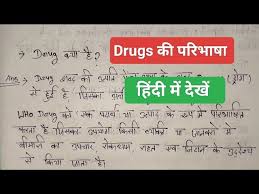 Drugs की परिभाषा
→ Drug क्या है ?
Ans → Drug शब्द की उत्पत्ति
हिंदी में देखें
से हुई है जिसका
WHO Drug को एक पदार्थ या उत्पाद के रूप में परिभाषित
करता है जिसका उपयोग किसी व्यक्ति या जानवरों में
बीमारी का उपचार रोकथाम, राहत एवं निदान के उद्देश्य
से किया जाता है।